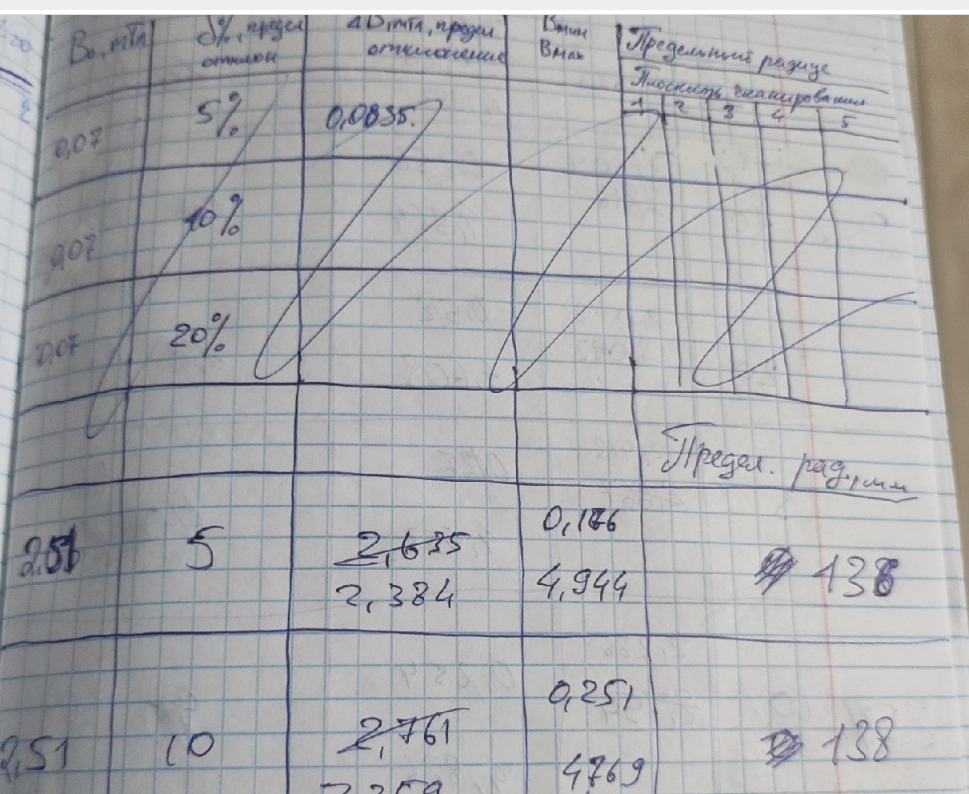 B₀, мТл δ%, предел отклон ΔB, мТл, предел отклонение Bмин Bмах Предельный радиус
Плоскить сканирования
1 2 3 4 5
0,07 5% 0,0835
0,07 10%
0,07 20%
Предел. рад., мм
2,51 5 2,635 0,126 138
2,384 4,944
2,51 10 2,761 0,251 138
2,259 4769